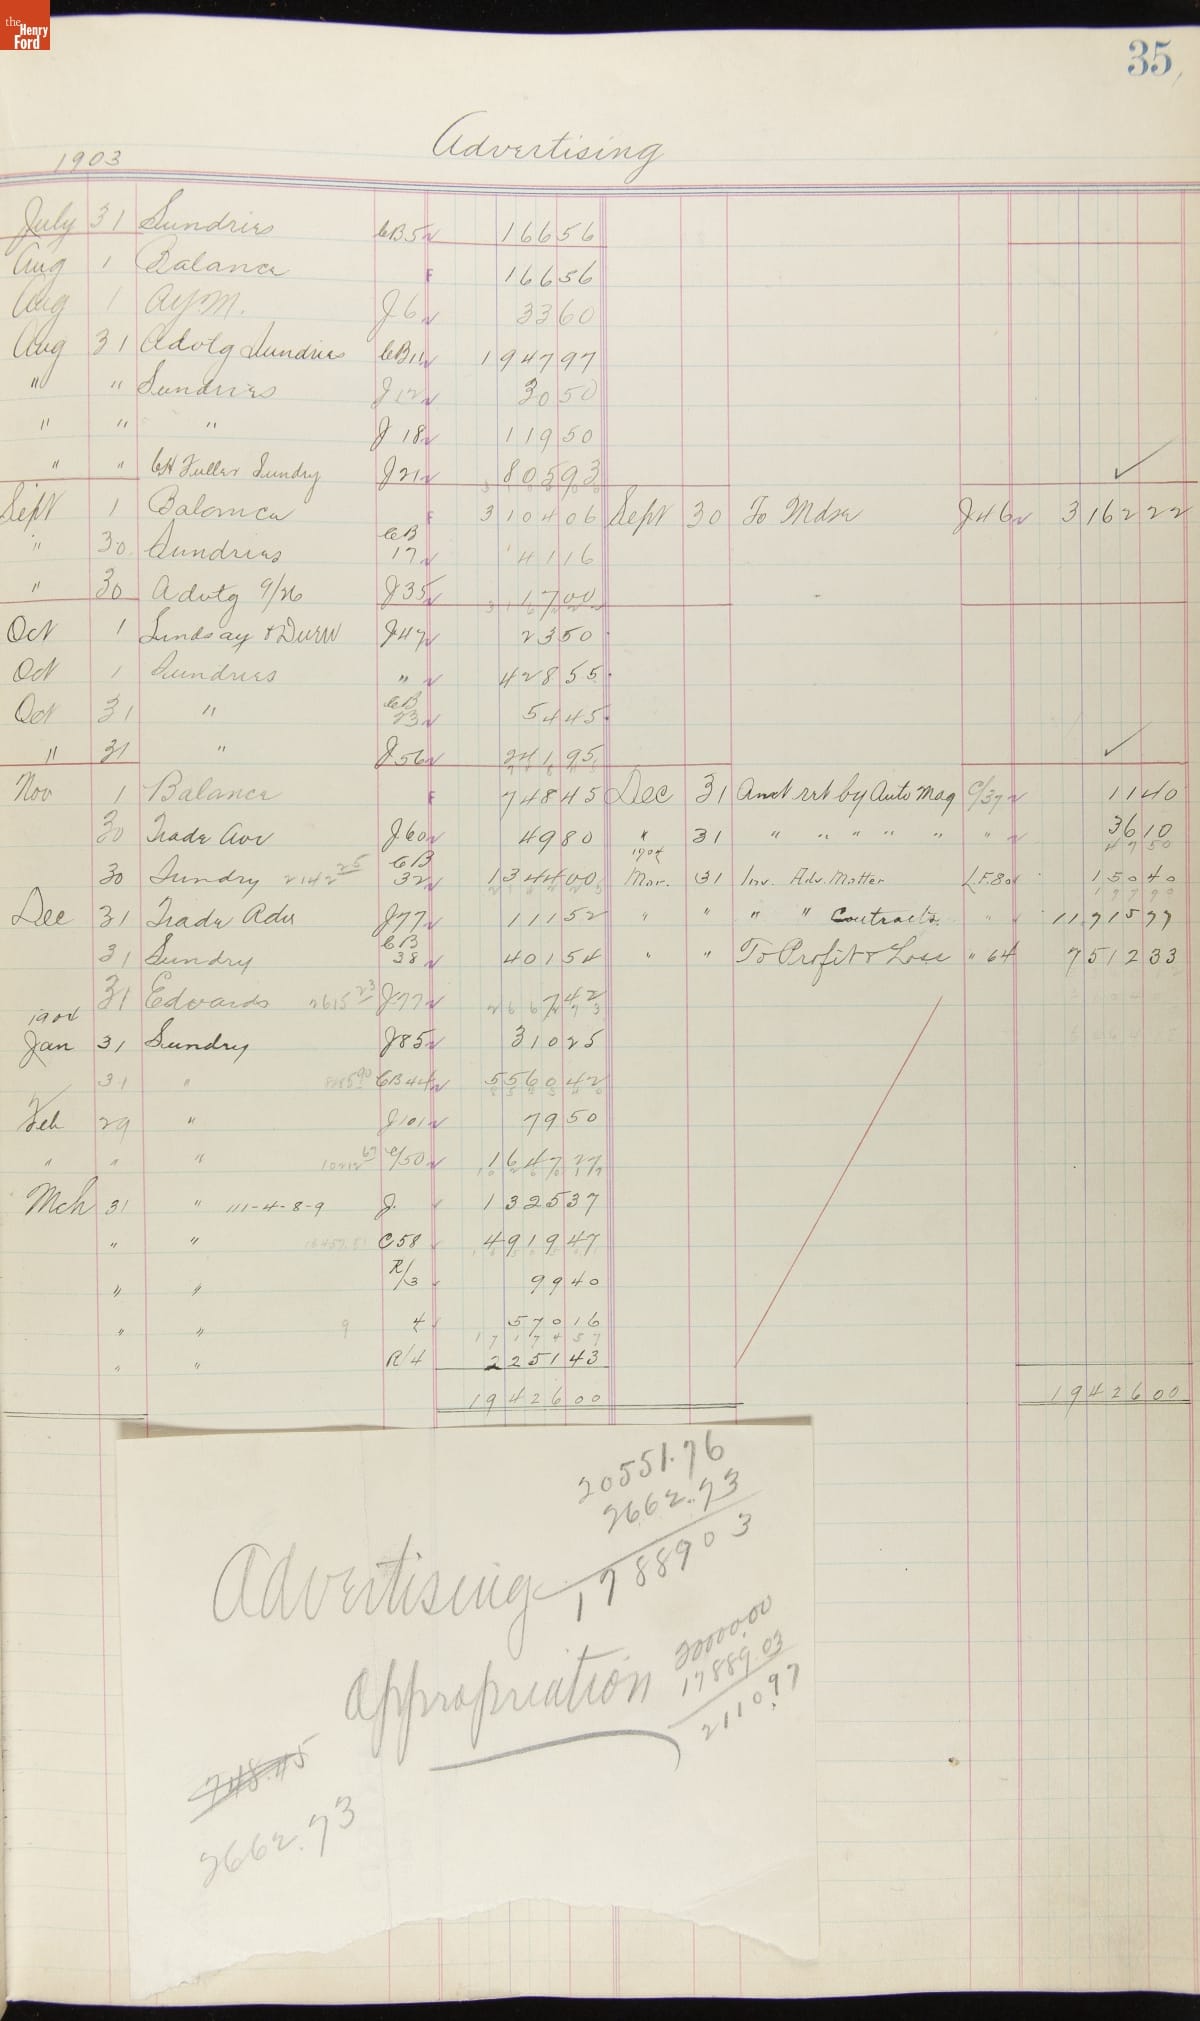 the Henry Ford
35
Advertising
1903
July 31 Sundries CB5 166 56
Aug 1 Balance F 166 56
Aug 1 J6 33 60
Aug 31 Advtg Sundries CB11 1947 97
" " Sundries J12 30 50
" " " J18 119 50
" " CH Fuller Sundry J21 805 93
Sept 1 Balance F 3104 06 Sept 30 To Mdse J46 3162 22
" 30 Sundries CB 17 41 16
" 30 Advtg 9/26 J35 17 00
Oct 1 Lindsay & J47 23 50
Oct 1 Sundries " 428 55
Oct 31 " CB 23 54 45
" 31 " J56 241 95
Nov 1 Balance F 748 45 Dec 31 Amt ret by Auto Mag C/37 11 40
30 Trade Adv J60 49 80 " 31 " " " " " " 36 10
47 50
30 Sundry 2142 25 CB 32 1344 00 1904 Mar. 31 Inv. Adv. Matter L.F.80 150 40
Dec 31 Trade Adv J77 111 52 " " " " Contracts " 11715 77
31 Sundry CB 38 401 54 " " To Profit & Loss " 64 7512 33
31 Edwards 2615 23 J77 7 42
2662 73
1904
Jan 31 Sundry J85 310 25
31 " CB44 5560 42
Feb 29 " J101 79 50
" " " 10212 67 C/50 1647 27
Mch 31 " 111-4-8-9 J. 1325 37
" " C58 4919 47
" " R/3 99 40
" " 4 570 16
17174 57
" " R/4 2251 43
19426 00 19426 00
20551.76
2662.73
17889 03
Advertising
appropriation
20000.00
17889.03
2110.97
748.45
2662.73